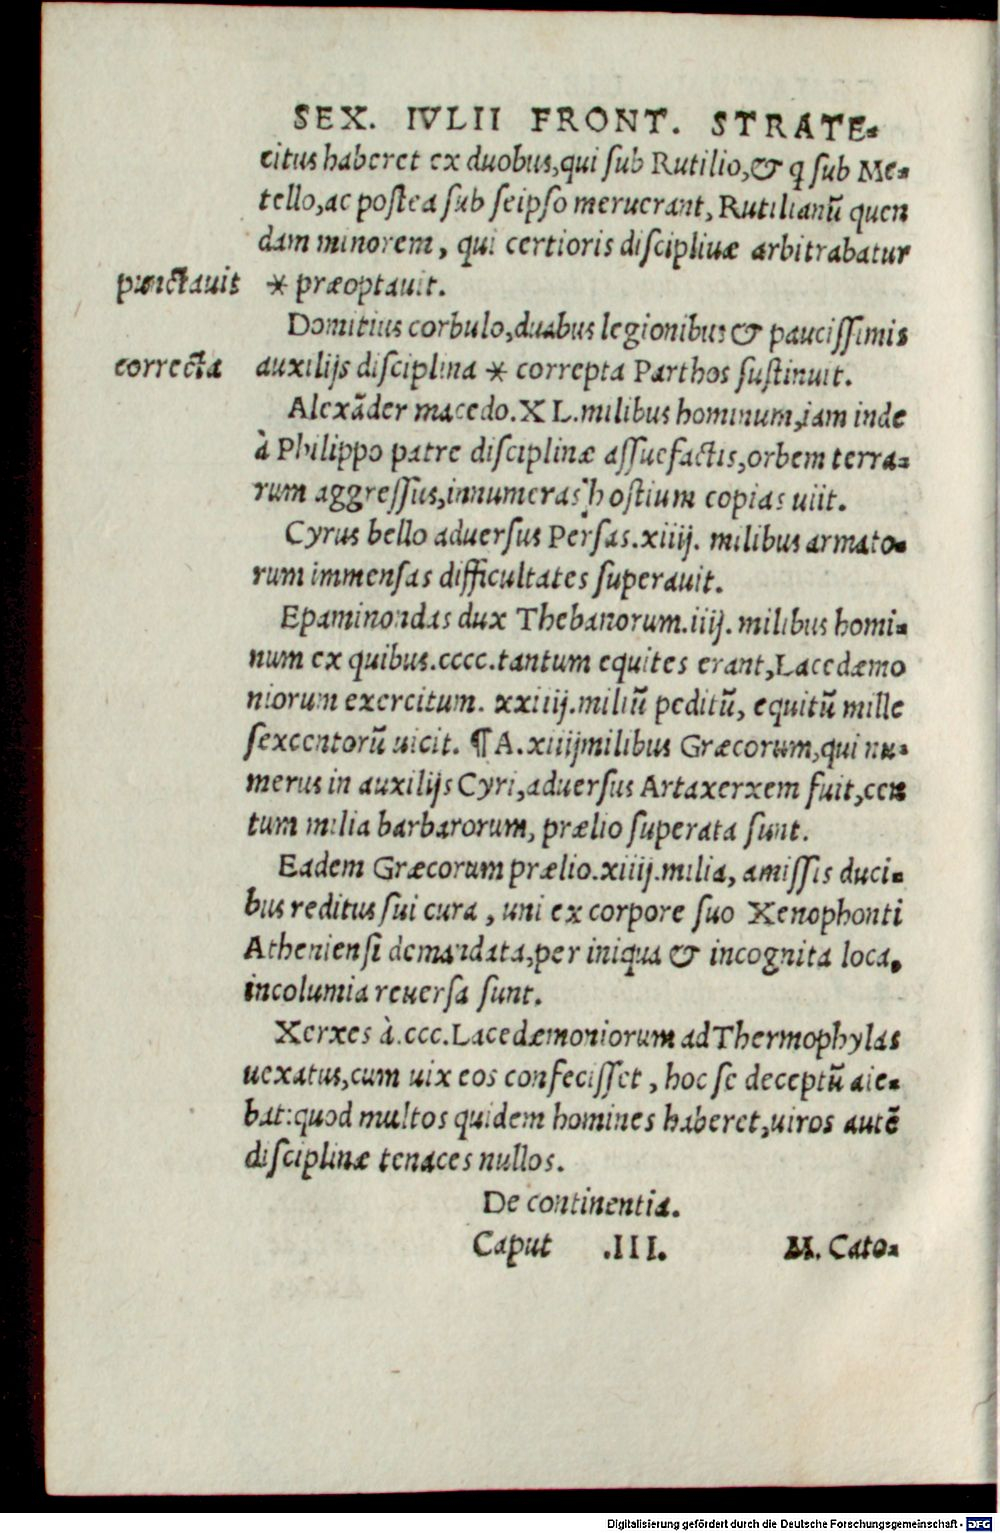 SEX. IVLII FRONT. STRATE-
citus haberet ex duobus, qui sub Rutilio, & q sub Me-
tello, ac postea sub seipso meruerant, Rutilianū quen
dam minorem, qui certioris disciplinæ arbitrabatur
punctauit * præoptauit.
Domitius corbulo, duabus legionibus & paucissimis
correcta auxilijs disciplina * correpta Parthos sustinuit.
Alexāder macedo. XL. milibus hominum, iam inde
à Philippo patre disciplinæ assuefactis, orbem terra-
rum aggressus, innumeras hostium copias uiit.
Cyrus bello aduersus Persas. xiiij. milibus armato-
rum immensas difficultates superauit.
Epaminondas dux Thebanorum. iiij. milibus homi-
num ex quibus. cccc. tantum equites erant, Lacedæmo
niorum exercitum. xxiiij. miliū peditū, equitū mille
sexcentorū uicit. ¶ A. xiiij milibus Græcorum, qui nu-
merus in auxilijs Cyri, aduersus Artaxerxem fuit, cen
tum milia barbarorum, prælio superata sunt.
Eadem Græcorum prælio. xiiij. milia, amissis duci-
bus reditus sui cura, uni ex corpore suo Xenophonti
Atheniensi demandata, per iniqua & incognita loca,
incolumia reuersa sunt.
Xerxes à. ccc. Lacedæmoniorum ad Thermophylas
uexatus, cum uix eos confecisset, hoc se deceptū aie-
bat: quod multos quidem homines haberet, uiros autē
disciplinæ tenaces nullos.
De continentia.
Caput .III. M. Cato-
Digitalisierung gefördert durch die Deutsche Forschungsgemeinschaft - DFG